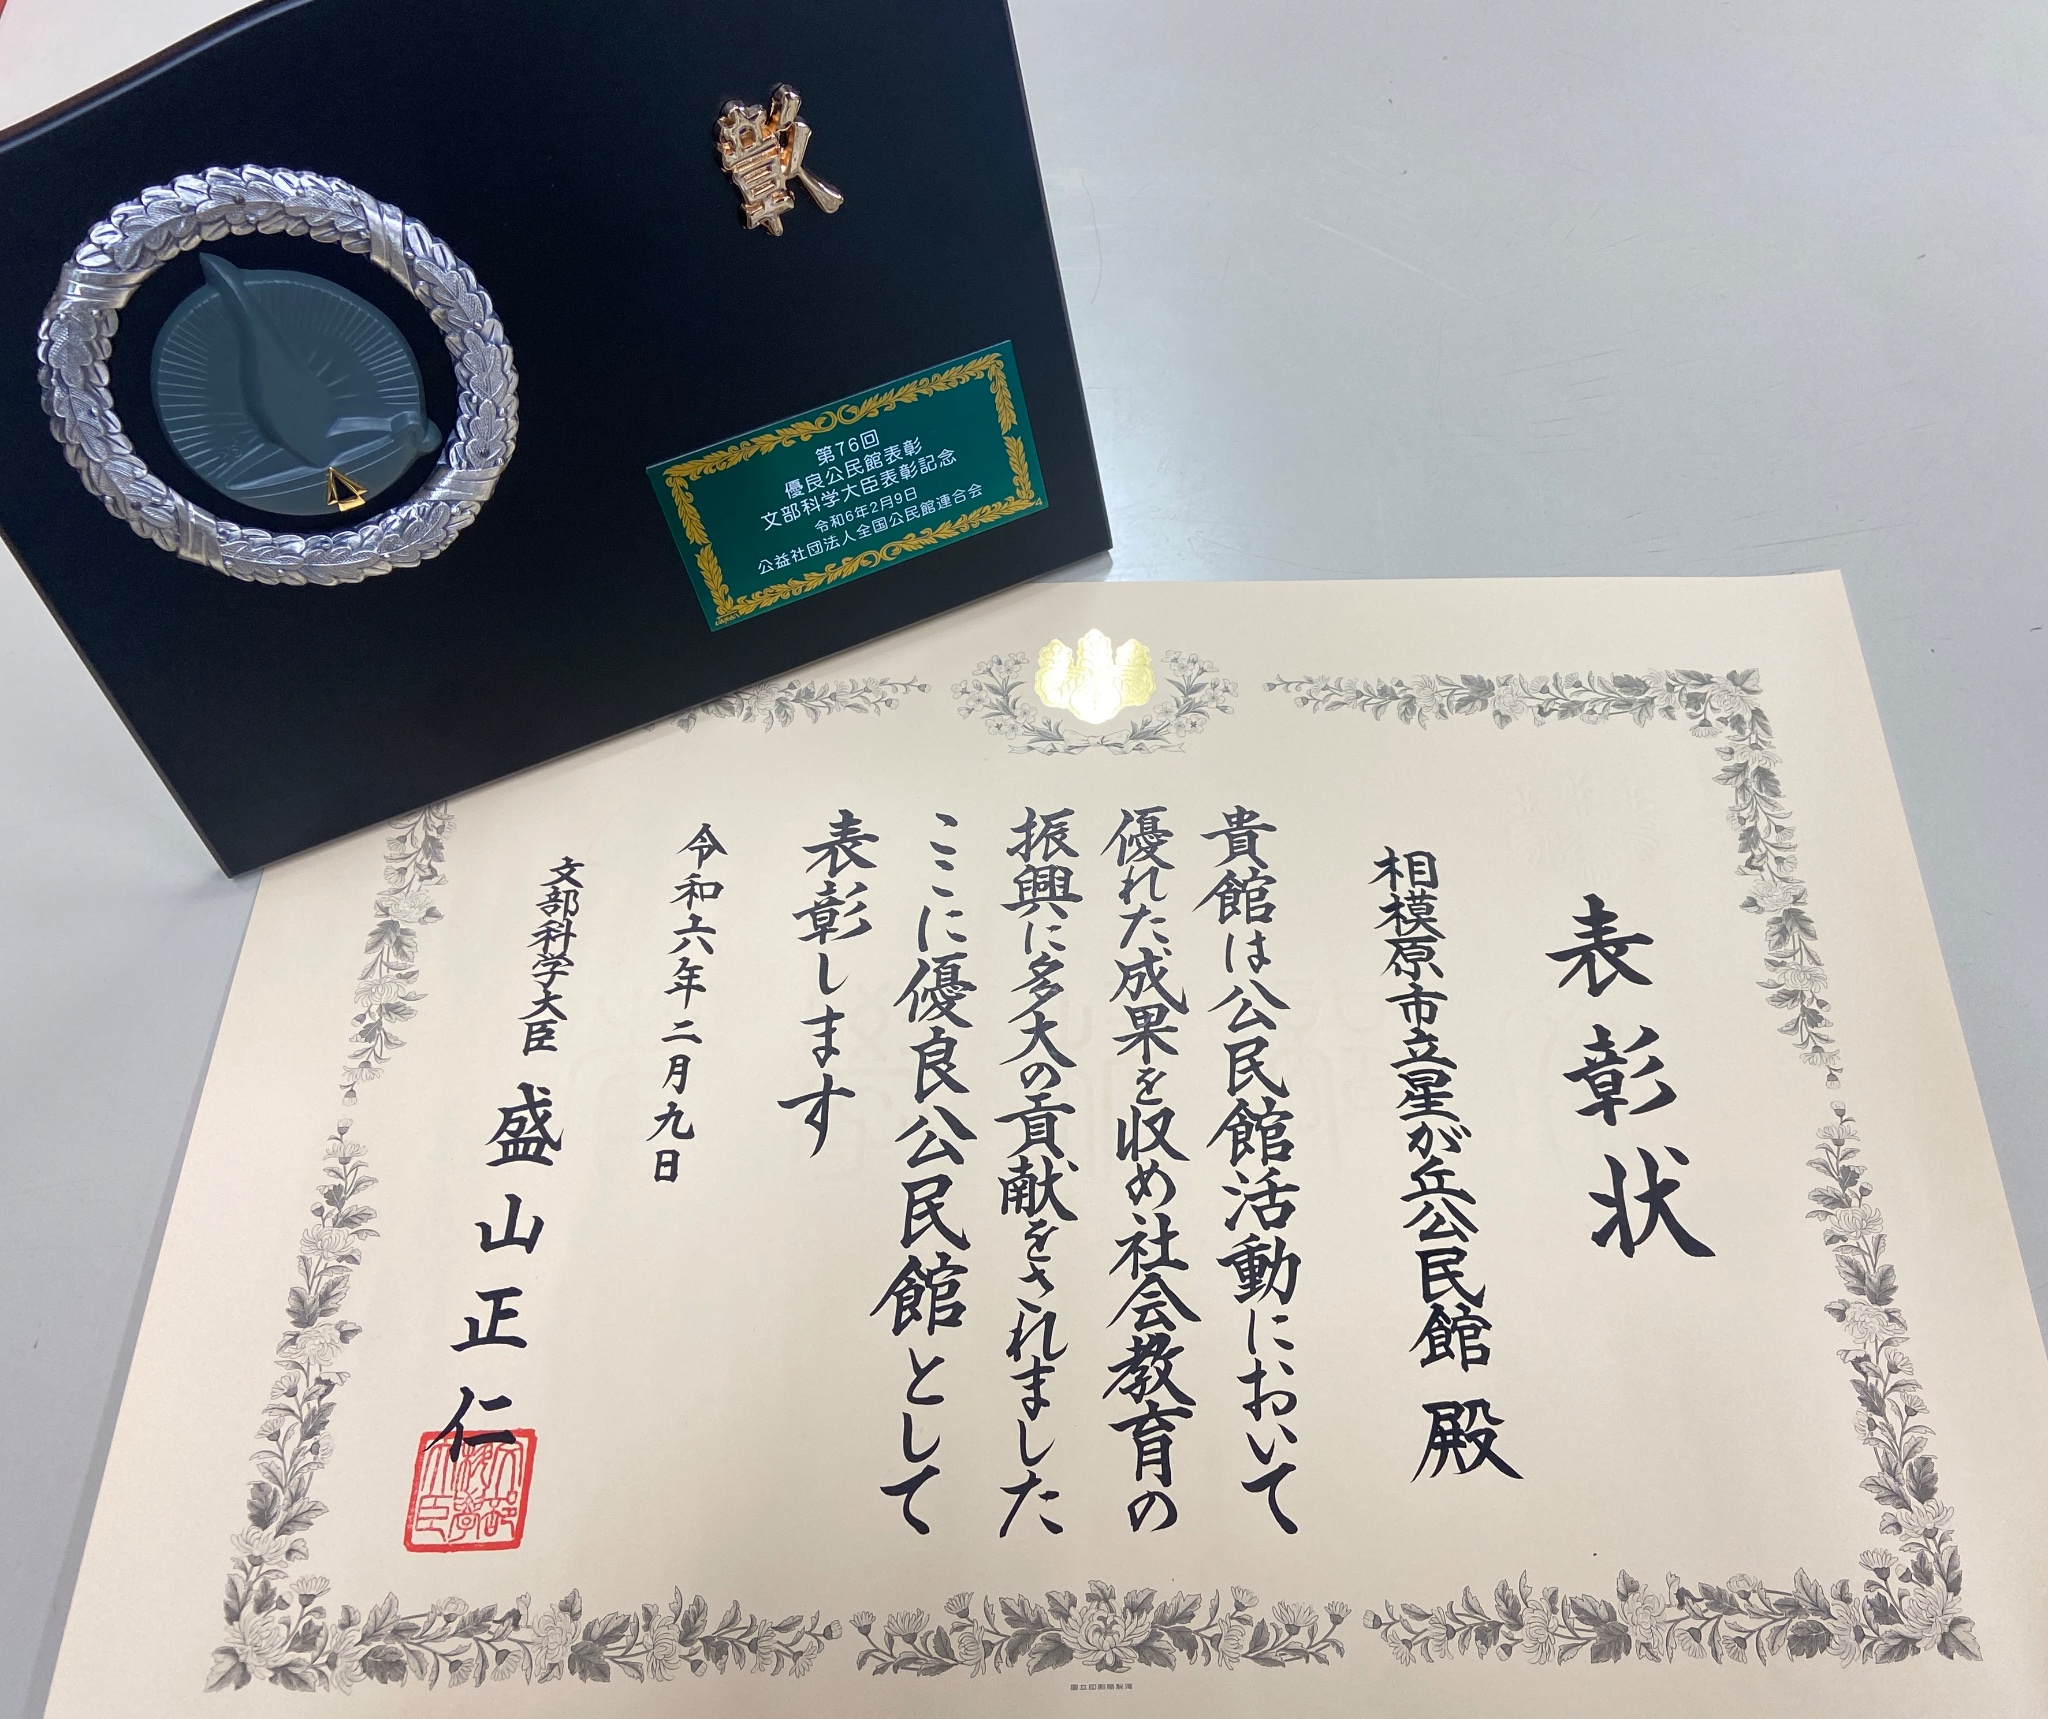 賞
第76回
優良公民館表彰
文部科学大臣表彰記念
令和6年2月9日
公益社団法人全国公民館連合会
表彰状
相模原市立星が丘公民館 殿
貴館は公民館活動において
優れた成果を収め社会教育の
振興に多大の貢献をされました
ここに優良公民館として
表彰します
令和六年二月九日
文部科学大臣 盛山正仁
文部科学大臣
国立印刷局製造